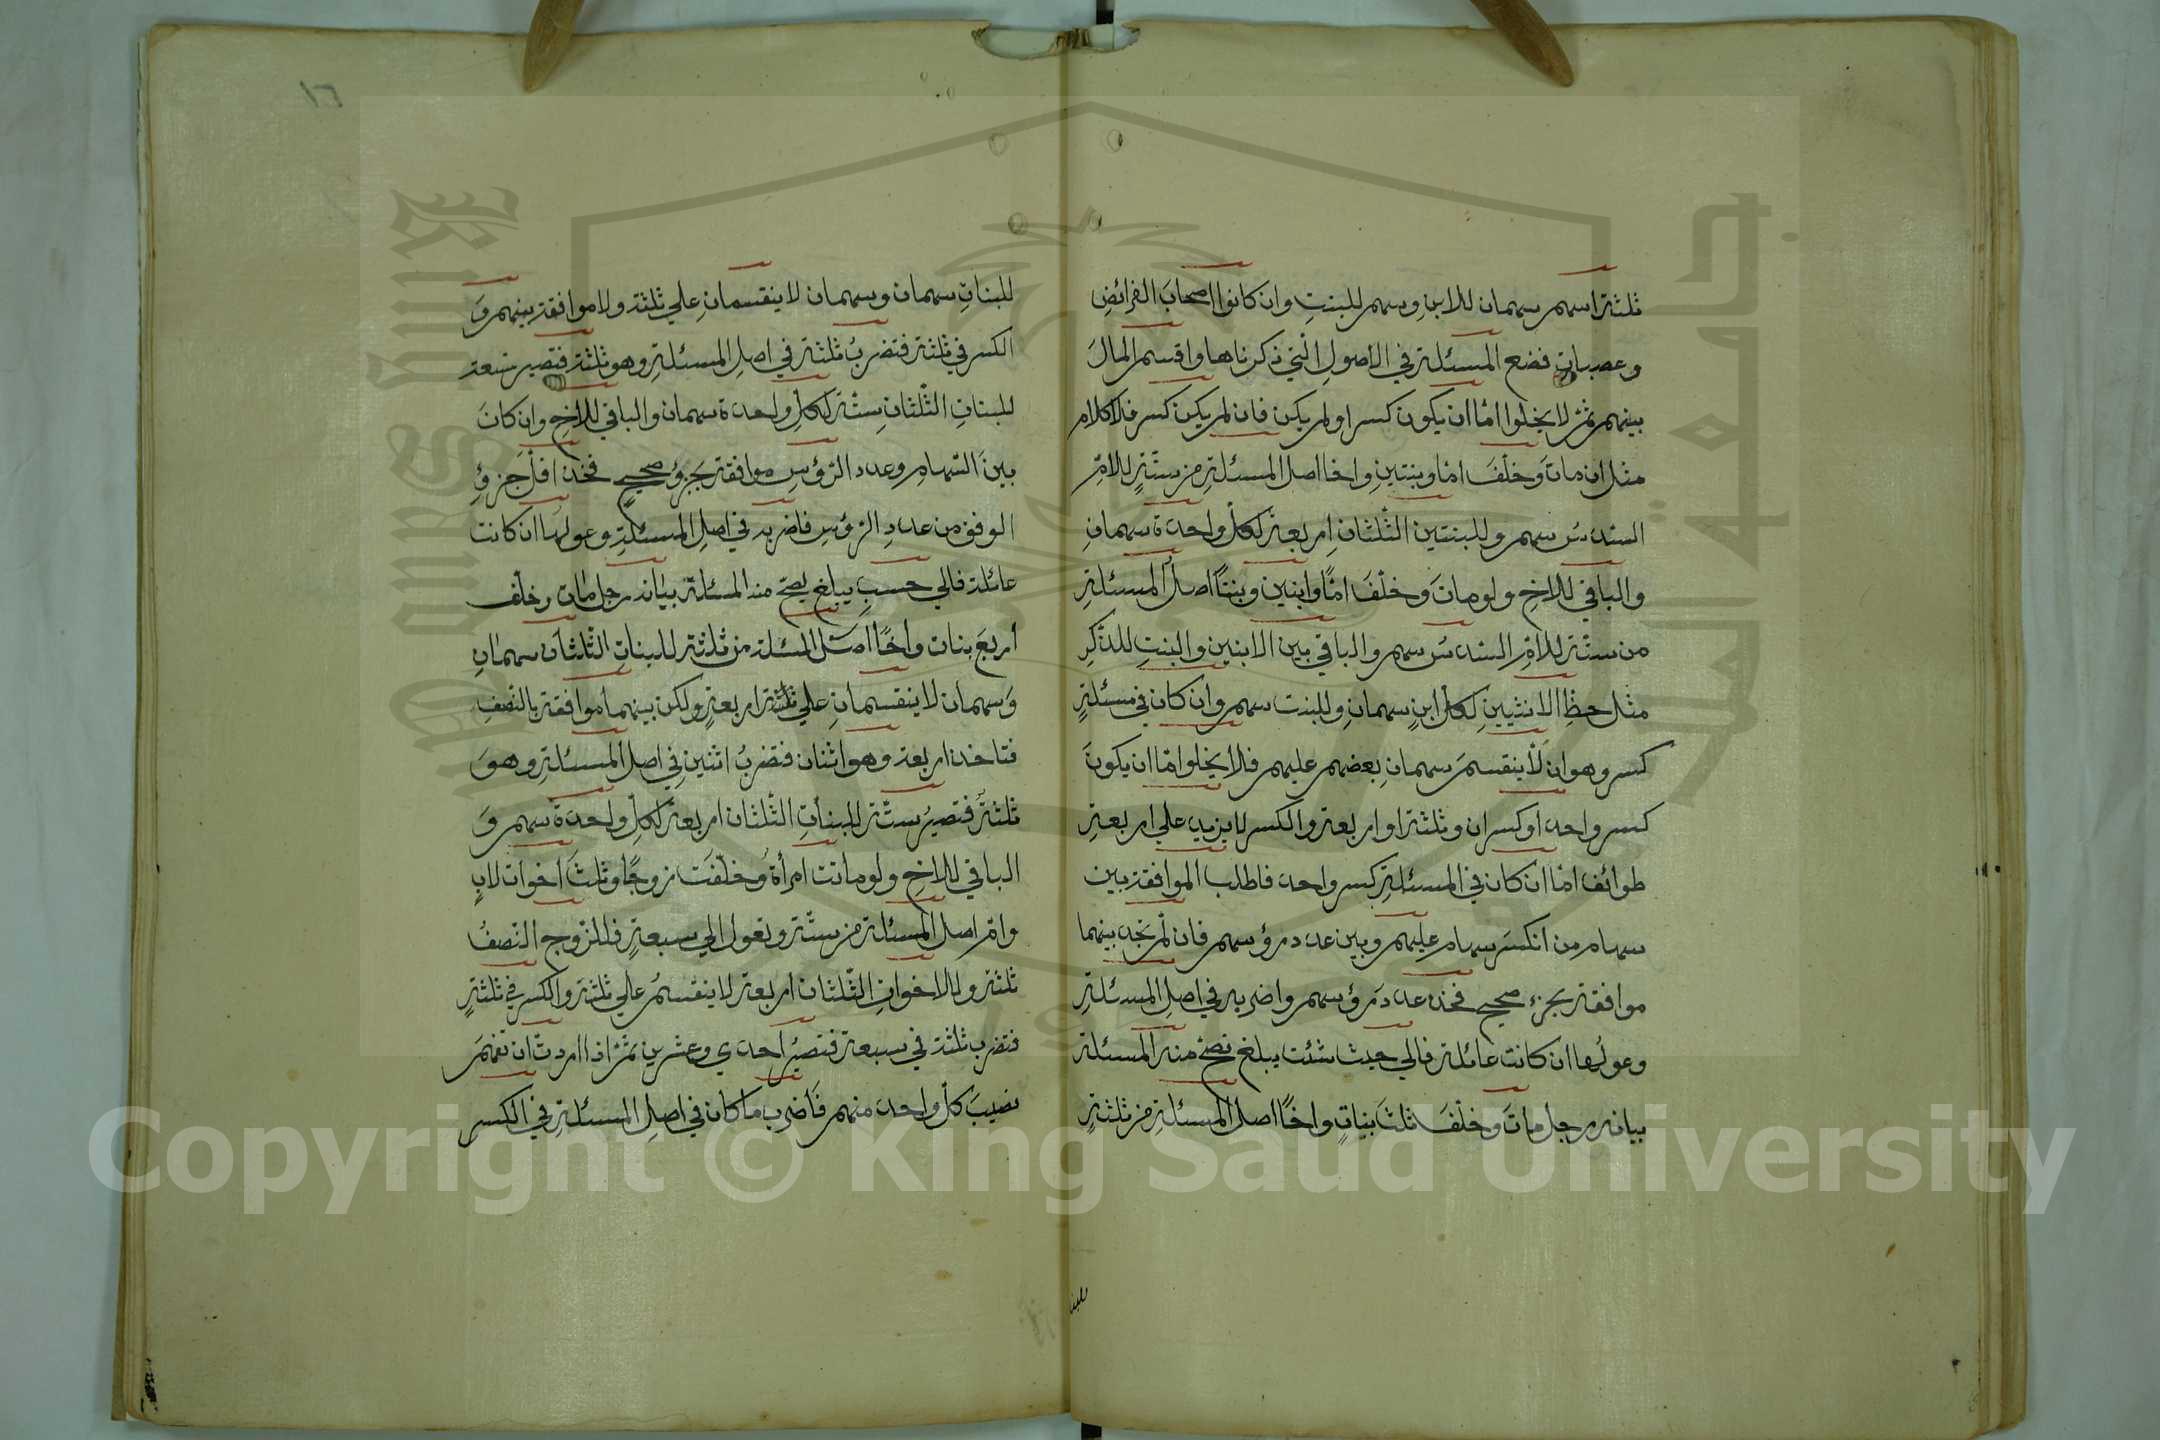 ثلثة اسهم سهمان للابن وسهم للبنت وان كانوا اصحاب الفرائض
وعصبات فضع المسئلة في الاصول التي ذكرناها واقسم المال
بينهم ثم لا يخلوا امّا ان يكون كسر او لم يكن فان لم يكن كسر فلا كلام
مثل ان ماتَ وخلّفَ امّا وبنتينِ واخا اصل المسئلة من ستّةٍ للامّ
السّدسُ سهم وللبنتين الثّلثانِ اربعة لكل واحدة سهمانِ
والباقي للاخِ ولو ماتَ وخلّفَ امّا وابنين وبنتًا اصل المسئلةِ
من ستّة للامّ السدسُ سهم والباقي بين الابنين والبنتِ للذّكرِ
مثل حظِّ الانثيينِ لكل ابنٍ سهمانِ وللبنت سهم وان كان في مسئلةٍ
كسر وهو ان لّا ينقسمَ سهمانِ بعضهم عليهم فلا يخلوا امّا ان يكونَ
كسر واحد او كسران وثلثة او اربعة والكسر لا يزيد علي اربعةِ
طوائف امّا ان كان في المسئلةِ كسر واحد فاطلب الموافقة بين
سهام من انكسرَ سهام عليهم وبين عدد رؤسهم فان لم تجد بينهما
موافقة بجزء صحيح فخذ عددَ رؤسهم واضربه في اصلِ المسئلةِ
وعولها ان كانت عائلة فالي حيث شئت يبلغ تصحّ منه المسئلة
بيانه رجل ماتَ وخلّفَ ثلثَ بناتٍ واخًا اصل المسئلةِ من ثلثةٍ
للبنا
١٦
للبناتِ سهمان وسهمان لا ينقسمانِ علي ثلثة ولا موافقة بينهم وَ
الكسر في ثلثة فتضربُ ثلثة في اصلِ المسئلةِ وهو ثلثة فتصير تسعة
للبناتِ الثّلثانِ ستّة لكلِّ واحدة سهمان والباقي للاخِ وان كانَ
بينَ السّهامِ وعدد الرّؤسِ موافقة بجزؤ صحيحٍ فخذ اقلّ جزؤِ
الوفق من عددِ الرّؤسِ فاضربه في اصلِ المسئلةِ وعولها ان كانت
عائلة فالي حسبِ يبلغ يصحّ منه المسئلة بيانه رجل مات وخلّف
أربعَ بنات واخًا اصل المسئلة من ثلثة للبناتِ الثّلثان سهمانِ
وَسهمان لا ينقسمانِ علي اربعةٍ ولكن بينهما موافقة بالنّصفِ
فتاخذ اربعة وهو اثنان فتضربُ اثنين في اصلِ المسئلةِ وهوَ
ثلثةٌ فتصيرُ ستّة للبناتِ الثّلثان اربعة لكلِّ واحدة سهم وَ
الباقي للاخِ ولو ماتت امرأةٌ وخلّفَت زوجًا وثلثَ اخوات لابٍ
وامّ اصل المسئلة من ستّة وتعول الي سبعةٍ فللزّوج النّصفُ
ثلثة وللاخواتِ الثّلثان اربعة لا ينقسمُ علي ثلثة والكسر في ثلثةٍ
فتضرب ثلثة في سبعة فتصيرُ احدي وعشرين ثمّ اذا اردتّ ان تفهمَ
نصيبَ كلّ واحد منهم فاَضرب ما كان في اصلِ المسئلةِ في الكسرِ
King Saud University
جامعة الملك سعود
Copyright © King Saud University